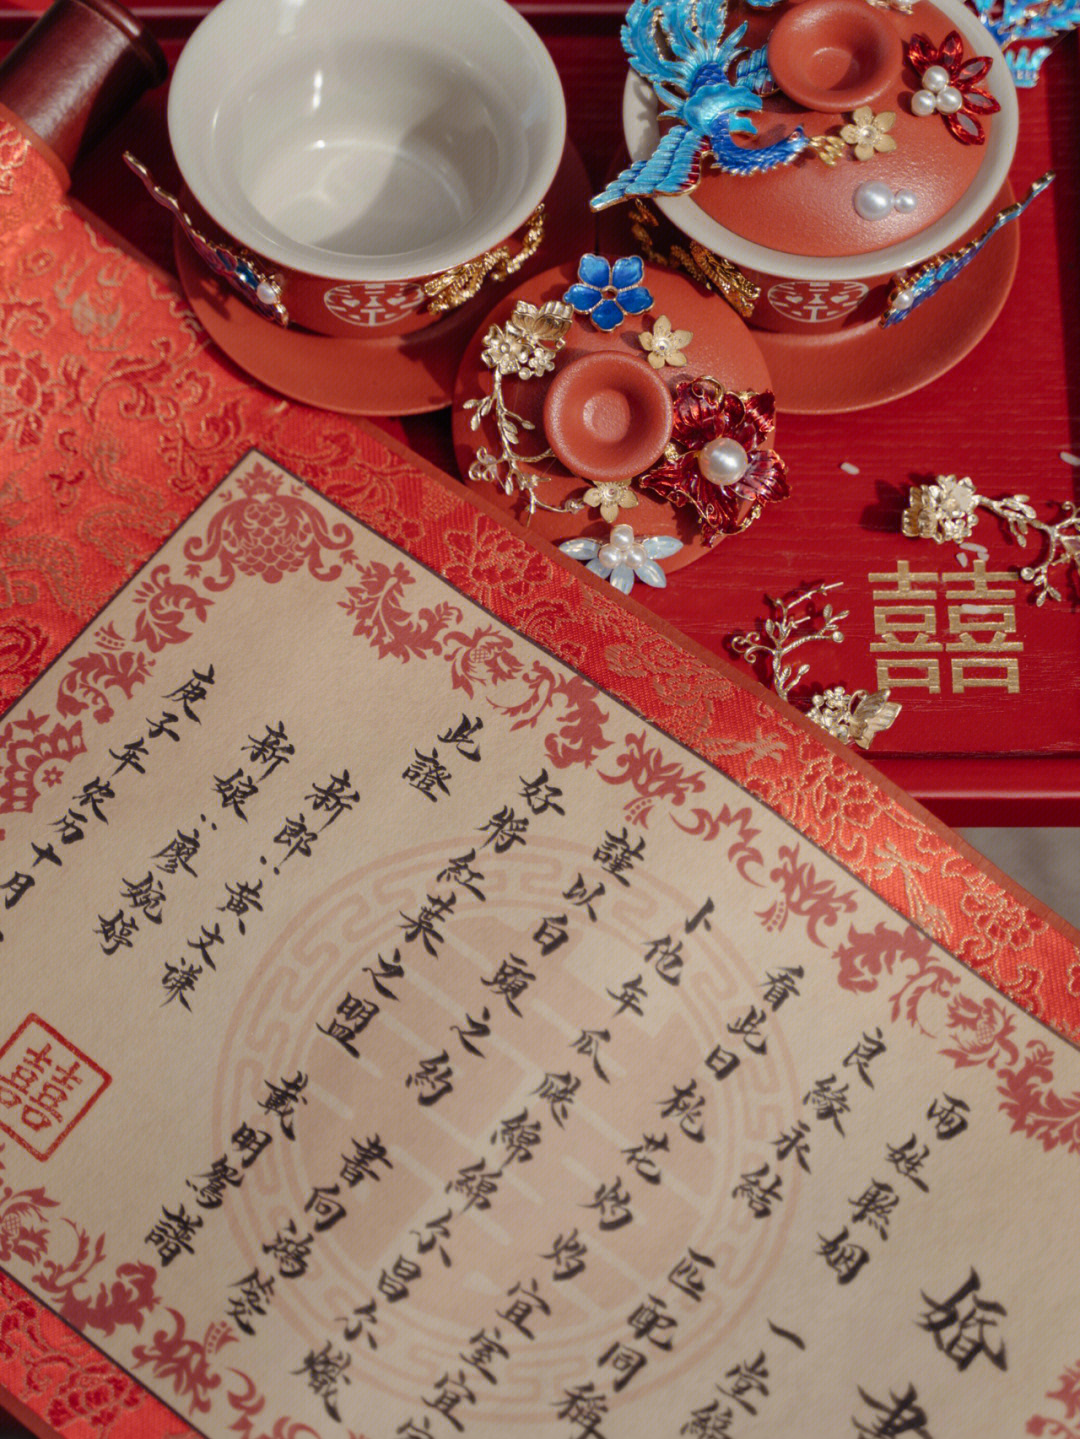 囍
婚書
兩姓聯姻 一堂締
良緣永結 匹配同稱
看此日桃花灼灼宜室宜
卜他年瓜瓞綿綿尔昌尔熾
謹以白頭之約 書向鴻箋
好將紅葉之盟 載明鴛譜
此證
新郎：黄文谦
新娘：廖婉婷
庚子年农历十月
囍